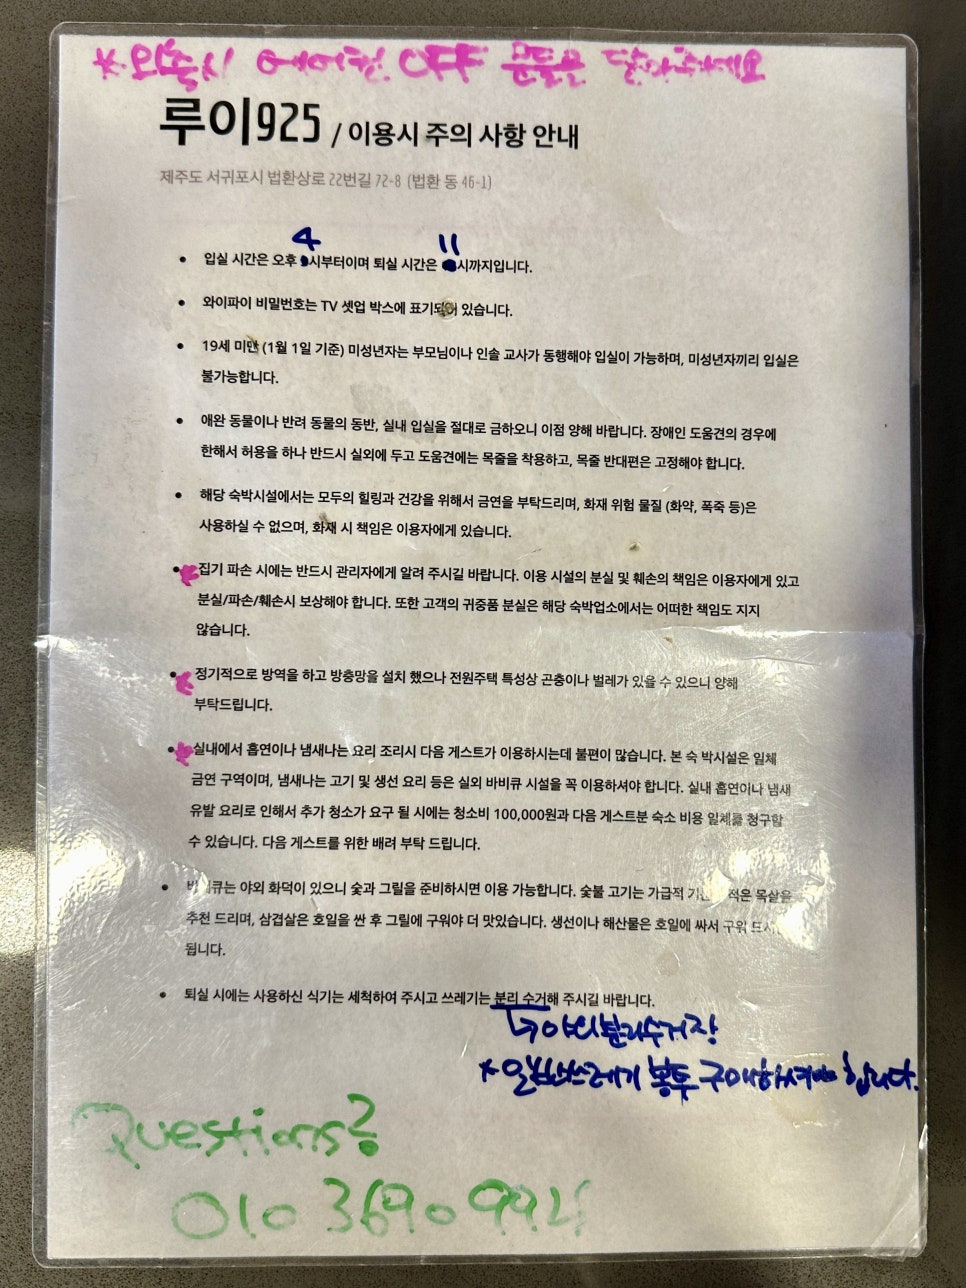 * 외출시 에어컨 OFF 문들은 닫아주세요
루이925 / 이용시 주의 사항 안내
제주도 서귀포시 법환상로 22번길 72-8 (법환 동 46-1)
4 11
• 입실 시간은 오후 시부터이며 퇴실 시간은 시까지입니다.
• 와이파이 비밀번호는 TV 셋업 박스에 표기되어 있습니다.
• 19세 미만 (1월 1일 기준) 미성년자는 부모님이나 인솔 교사가 동행해야 입실이 가능하며, 미성년자끼리 입실은
불가능합니다.
• 애완 동물이나 반려 동물의 동반, 실내 입실을 절대로 금하오니 이점 양해 바랍니다. 장애인 도움견의 경우에
한해서 허용을 하나 반드시 실외에 두고 도움견에는 목줄을 착용하고, 목줄 반대편은 고정해야 합니다.
• 해당 숙박시설에서는 모두의 힐링과 건강을 위해서 금연을 부탁드리며, 화재 위험 물질 (화약, 폭죽 등)은
사용하실 수 없으며, 화재 시 책임은 이용자에게 있습니다.
• 집기 파손 시에는 반드시 관리자에게 알려 주시길 바랍니다. 이용 시설의 분실 및 훼손의 책임은 이용자에게 있고
분실/파손/훼손시 보상해야 합니다. 또한 고객의 귀중품 분실은 해당 숙박업소에서는 어떠한 책임도 지지
않습니다.
• 정기적으로 방역을 하고 방충망을 설치 했으나 전원주택 특성상 곤충이나 벌레가 있을 수 있으니 양해
부탁드립니다.
• 실내에서 흡연이나 냄새나는 요리 조리시 다음 게스트가 이용하시는데 불편이 많습니다. 본 숙 박시설은 일체
금연 구역이며, 냄새나는 고기 및 생선 요리 등은 실외 바비큐 시설을 꼭 이용하셔야 합니다. 실내 흡연이나 냄새
유발 요리로 인해서 추가 청소가 요구 될 시에는 청소비 100,000원과 다음 게스트분 숙소 비용 일체를 청구할
수 있습니다. 다음 게스트를 위한 배려 부탁 드립니다.
• 바비큐는 야외 화덕이 있으니 숯과 그릴을 준비하시면 이용 가능합니다. 숯불 고기는 가급적 적은 목살을
추천 드리며, 삼겹살은 호일을 싼 후 그릴에 구워야 더 맛있습니다. 생선이나 해산물은 호일에 싸서 구워
됩니다.
• 퇴실 시에는 사용하신 식기는 세척하여 주시고 쓰레기는 분리 수거해 주시길 바랍니다.
↳야외분리수거장
* 일반쓰레기 봉투 구매하셔야 합니다.
Questions?
010 3690